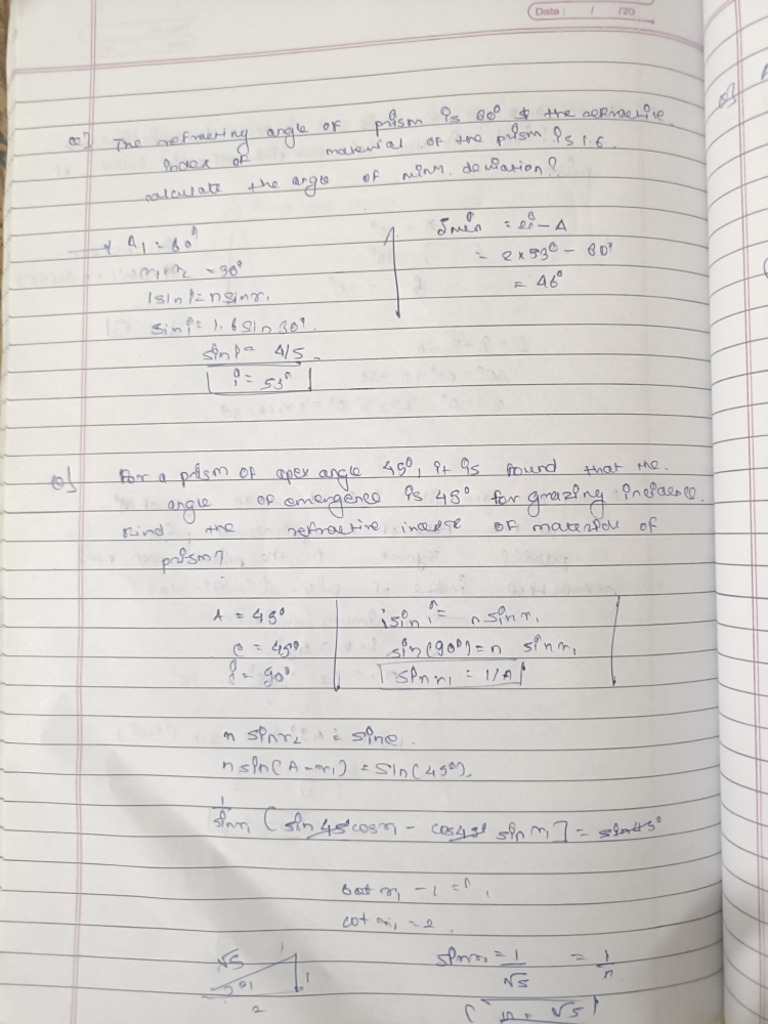 Date : / /20
Q] The refracting angle of prism is 60° & the refractive
index of material of the prism is 1.6
calculate the angle of minm. deviation?
A₁ = 60°
r₁ = r₂ = 30°
1 sin i = n sin r₁
sin i = 1.6 sin 30°
sin i = 4/5
i = 53°
δmin = 2i - A
= 2 x 53° - 60°
= 46°
Q] For a prism of apex angle 45°, it is found that the
angle of emergence is 45° for grazing incidence.
Find the refractive index of material of
prism?
A = 45°
e = 45°
i = 90°
1 sin i = n sin r₁
sin(90°) = n sin r₁
sin r₁ = 1/n
n sin r₂ = sin e
n sin(A - r₁) = sin(45°)
1/sin r₁ [sin 45° cos r₁ - cos 45° sin r₁] = sin 45°
cot r₁ - 1 = 1
cot r₁ = 2
√5 1
r₁
2
sin r₁ = 1/√5 = 1/n
n = √5